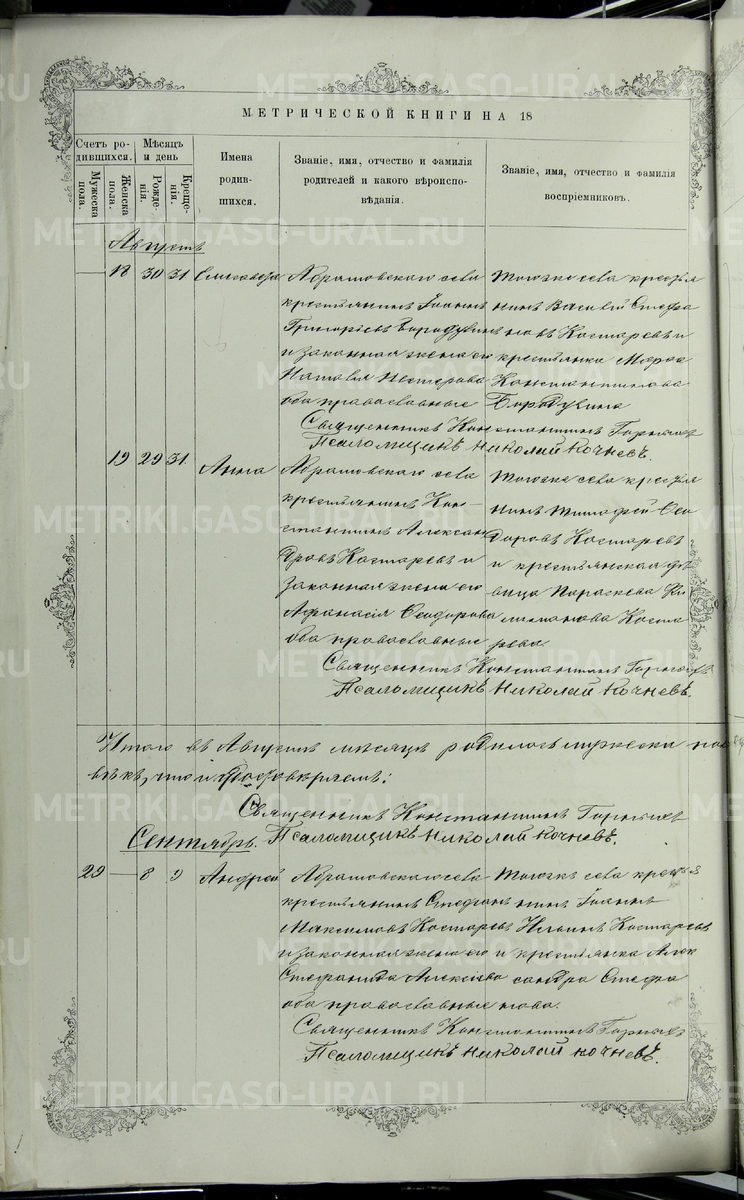 МЕТРИЧЕСКОЙ КНИГИ НА 18
Счетъ родившихся.
Мужеска пола.
Женска пола.
Мѣсяцъ и день
Рожденія.
Крещенія.
Имена
родив-
шихся.
Званіе, имя, отчество и фамилія
родителей и какого вѣроиспо-
вѣданія.
Званіе, имя, отчество и фамилія
воспріемниковъ.
Августъ
18 30 31 Елисавета
Абрамовскаго села
крестьянинъ Іоаннъ
Григорьевъ
и законная жена его
Нестерова
оба православные
Тогоже села крестья
нинъ Василій Стефа
новъ Костаревъ и
крестьянка
Константинова
Священникъ Константинъ
Псаломщикъ Николай Кочневъ.
19 29 31 Анна
Абрамовскаго села
крестьянинъ Кон-
стантинъ Алексан
дровъ Костаревъ и
законная жена его
Афанасія Ѳеодорова
оба православные
Тогоже села крестья
нинъ Тимофей Ѳео
доровъ Костаревъ
и крестьянская дѣ
вица Параскева Фи
липпова Коста
рева
Священникъ Константинъ
Псаломщикъ Николай Кочневъ.
Итого въ Августѣ мѣсяцѣ родилось мужеска
Священникъ Константинъ
Сентябрь. Псаломщикъ Николай Кочневъ.
29 — 8 9 Андрей
Абрамовскаго села
крестьянинъ Стефанъ
Максимовъ Костаревъ
и законная жена его
Стефанида Алексѣева
оба православные
Тогоже села крестья
нинъ Іоаннъ
Костаревъ
и крестьянка Алек
сандра Стефа
нова.
Священникъ Константинъ
Псаломщикъ Николай Кочневъ.
METRIKI.GASO-URAL.RU